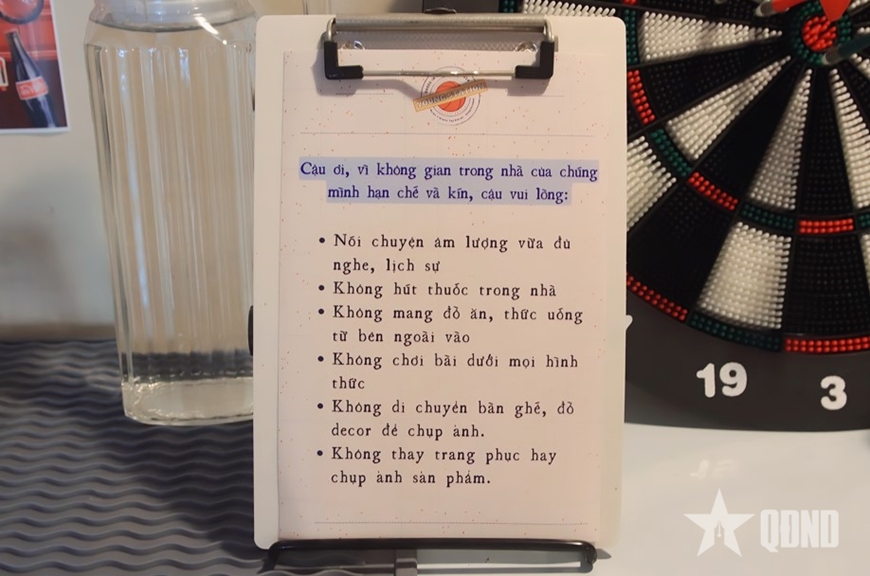 Cậu ơi, vì không gian trong nhà của chúng
mình hạn chế và kín, cậu vui lòng:
• Nói chuyện âm lượng vừa đủ
nghe, lịch sự
• Không hút thuốc trong nhà
• Không mang đồ ăn, thức uống
từ bên ngoài vào
• Không chơi bài dưới mọi hình
thức
• Không di chuyển bàn ghế, đồ
decor để chụp ảnh.
• Không thay trang phục hay
chụp ảnh sản phẩm.
19
3
QĐND